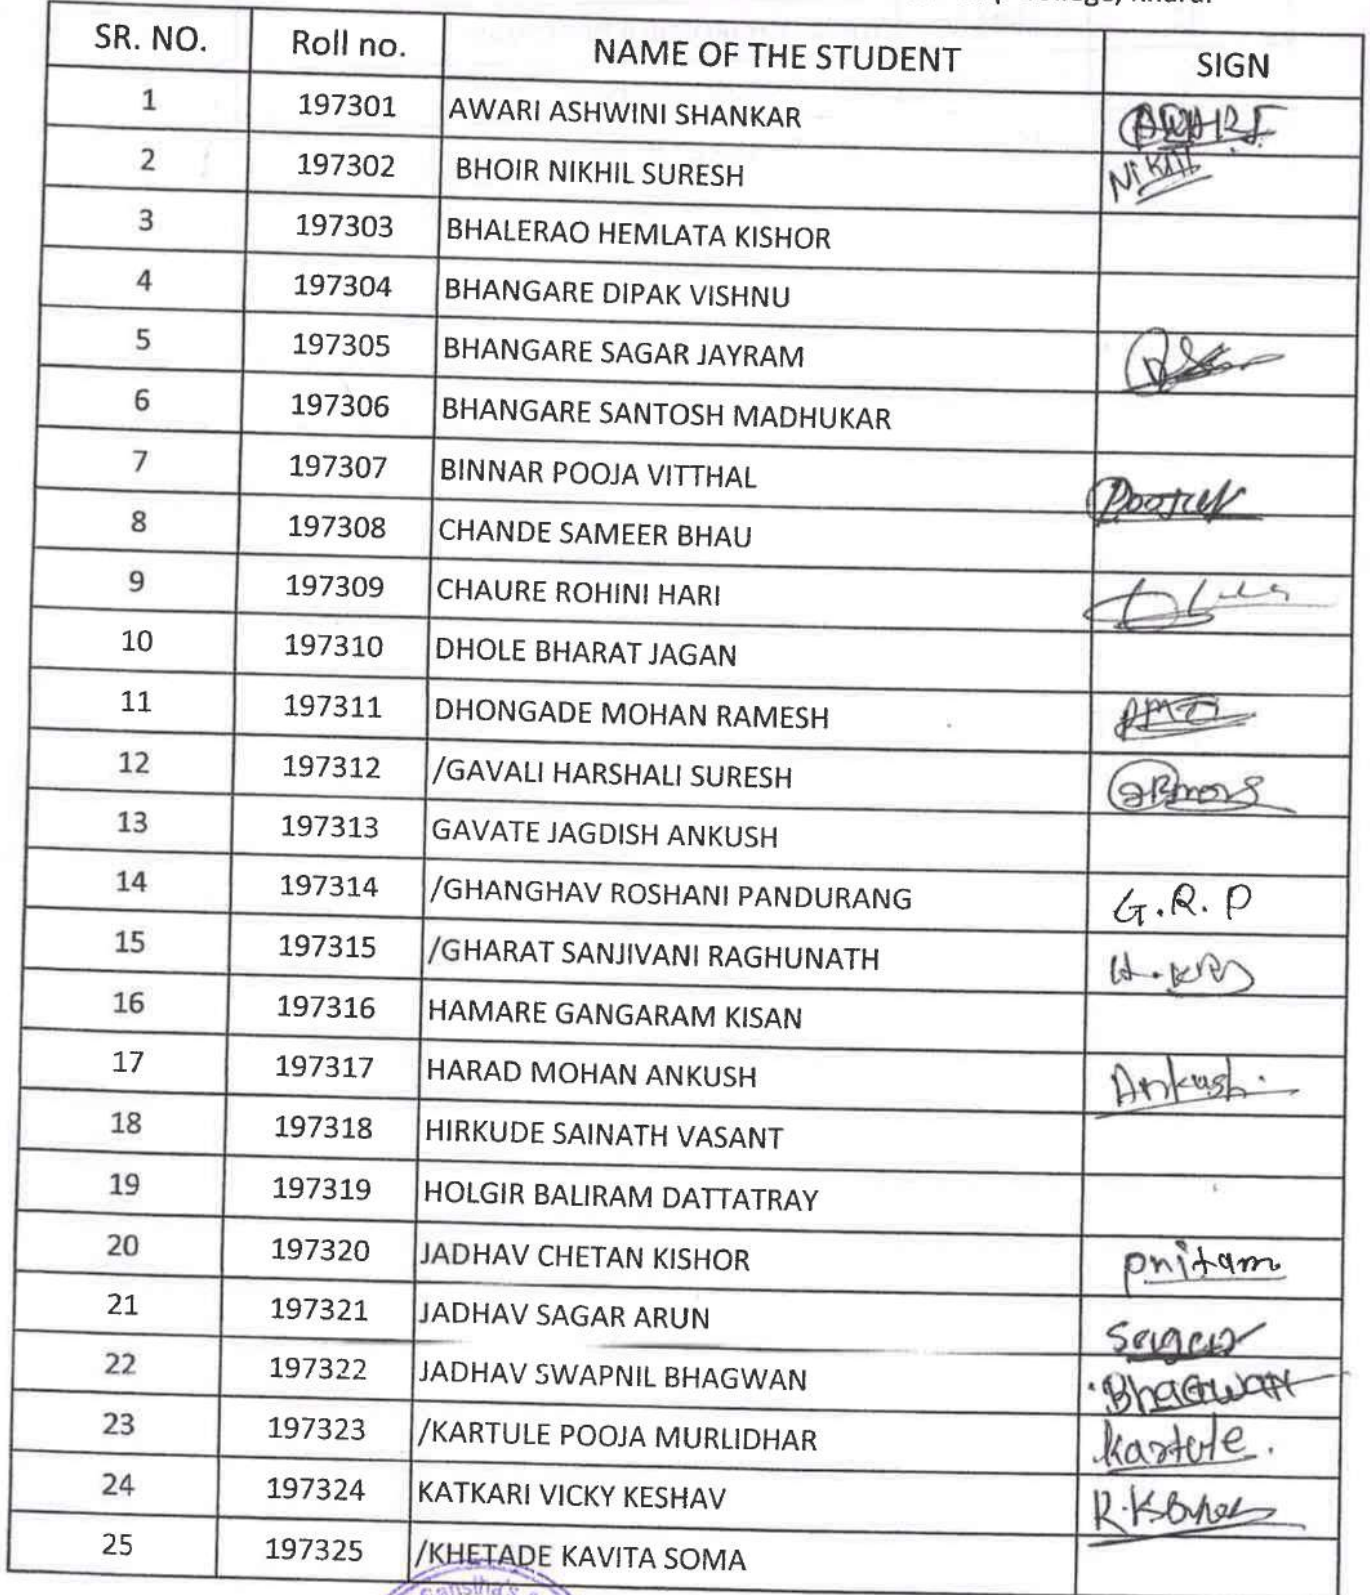 SR. NO. Roll no. NAME OF THE STUDENT SIGN
1 197301 AWARI ASHWINI SHANKAR AWARI
2 197302 BHOIR NIKHIL SURESH
3 197303 BHALERAO HEMLATA KISHOR
4 197304 BHANGARE DIPAK VISHNU
5 197305 BHANGARE SAGAR JAYRAM
6 197306 BHANGARE SANTOSH MADHUKAR
7 197307 BINNAR POOJA VITTHAL
8 197308 CHANDE SAMEER BHAU
9 197309 CHAURE ROHINI HARI
10 197310 DHOLE BHARAT JAGAN
11 197311 DHONGADE MOHAN RAMESH
12 197312 /GAVALI HARSHALI SURESH
13 197313 GAVATE JAGDISH ANKUSH
14 197314 /GHANGHAV ROSHANI PANDURANG G.R.P
15 197315 /GHARAT SANJIVANI RAGHUNATH
16 197316 HAMARE GANGARAM KISAN
17 197317 HARAD MOHAN ANKUSH Ankush.
18 197318 HIRKUDE SAINATH VASANT
19 197319 HOLGIR BALIRAM DATTATRAY
20 197320 JADHAV CHETAN KISHOR
21 197321 JADHAV SAGAR ARUN Sagar
22 197322 JADHAV SWAPNIL BHAGWAN BhaGwan
23 197323 /KARTULE POOJA MURLIDHAR kartule.
24 197324 KATKARI VICKY KESHAV
25 197325 /KHETADE KAVITA SOMA